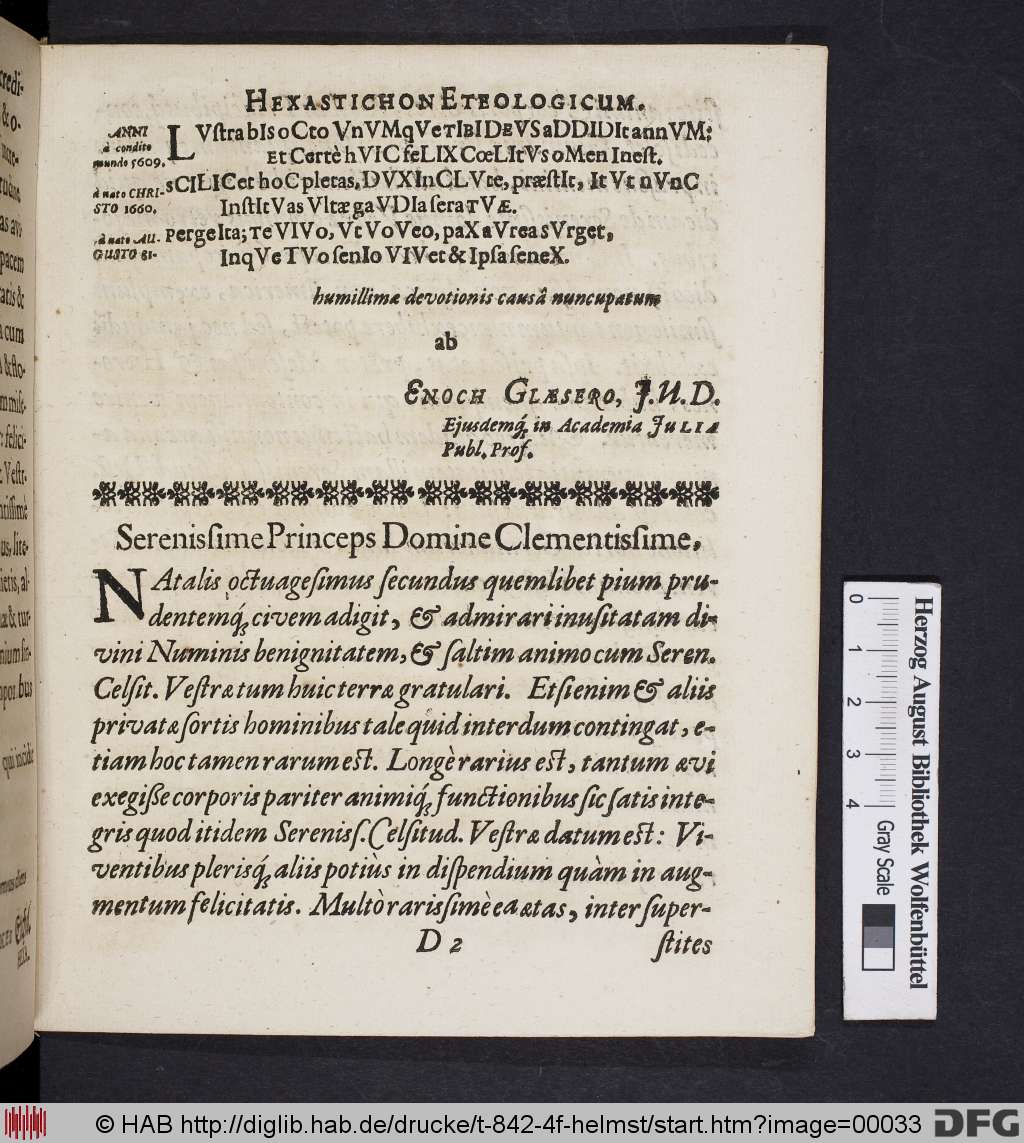 HEXASTICHON ETEOLOGICUM.
ANNI
à condito
mundo 5609.
LVſtrabIs oCto VnVMqVe TIBI DEVS aDDIDIt annVM:
Et Certè hVIC feLIX CœLItVs oMen Ineſt.
à nato CHRI-
STO 1660.
sCILICet hoC pIetas, DVX InCLVte, præſtIt, It Vt nVnC
InſtItVas VItæ gaVDIa ſera TVÆ.
à nato AU-
GUSTO 81.
Perge Ita; Te VIVo, Vt VoVeo, paX aVrea sVrget,
InqVe TVo ſenIo VIVet & Ipſa ſeneX.
humillimæ devotionis causâ nuncupatum
ab
ENOCH GLÆSERO, J.U.D.
Ejusdemq́; in Academia JULIA
Publ. Prof.
Sereniſsime Princeps Domine Clementiſsime,
NAtalis octuageſimus ſecundus quemlibet pium pru-
dentemq́; civem adigit, & admirari inuſitatam di-
vini Numinis benignitatem, & ſaltim animo cum Seren.
Celſit. Veſtræ tum huic terræ gratulari. Etſi enim & aliis
privatæ ſortis hominibus tale quid interdum contingat, e-
tiam hoc tamen rarum est. Longè rarius est, tantum ævi
exegiſſe corporis pariter animiq́; functionibus ſic ſatis inte-
gris quod itidem Sereniſſ. Celſitud. Veſtræ datum est: Vi-
ventibus plerisq́; aliis potiùs in diſpendium quàm in aug-
mentum felicitatis. Multò rarissimè ea ætas, inter ſuper-
D 2
ſtites
0
1
2
3
4
Herzog August Bibliothek Wolfenbüttel
Gray Scale
© HAB http://diglib.hab.de/drucke/t-842-4f-helmst/start.htm?image=00033
DFG